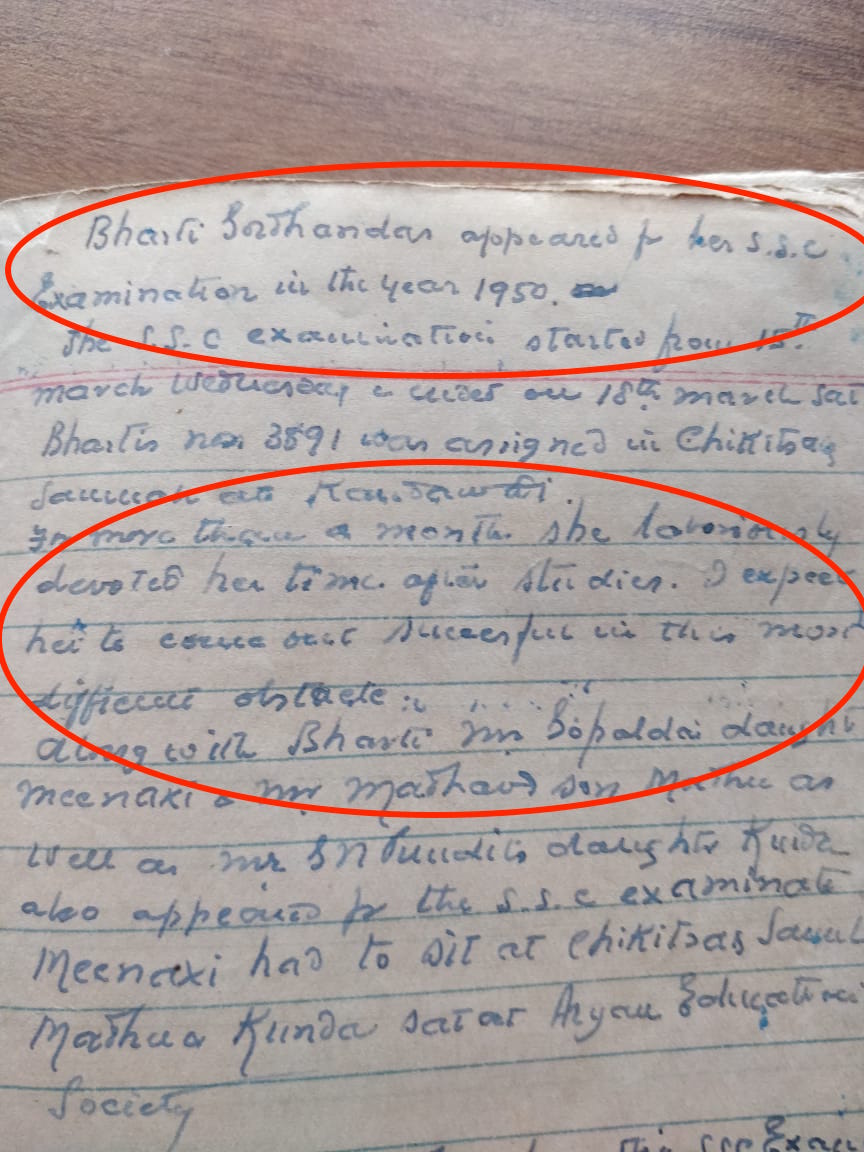 Bharti appeared for her S.S.C
Examination in the year 1950.
The S.S.C examination started from 15th
march Wednesday & ended on 18th march Sat
Bhartis 3891 was assigned in Chikitsag

In more than a month she laboriously
devoted her time after studies. I expect
her to come out successful in this most
difficult obstacle
Along with Bharti Mr Gopaldas daught
Meenaxi & Mr Madhavd son Madhu as
well as Mr daughter Kunda
also appeared for the S.S.C examinate
Meenaxi had to sit at Chikitsag Samul
Madhu & Kunda sat at Aryan Educational
Society